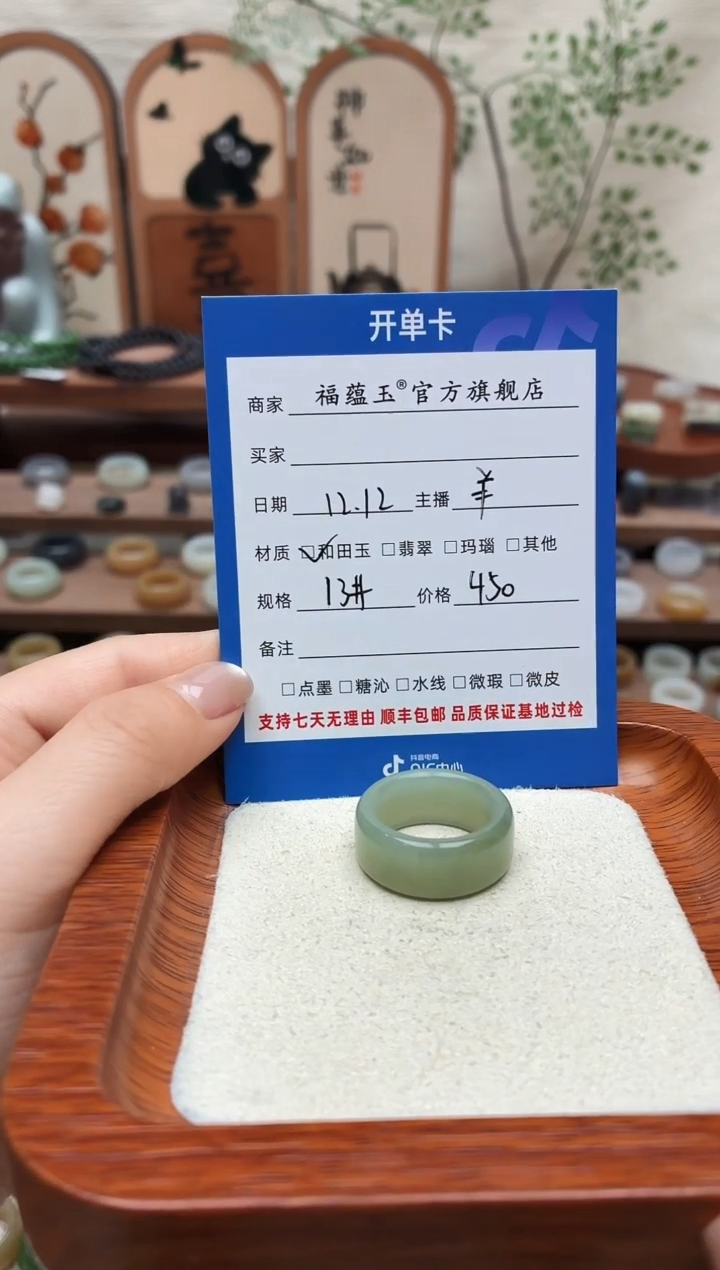 开单卡
商家 福蕴玉®官方旗舰店
买家
日期 12.12 主播 羊
材质 ☑和田玉 □翡翠 □玛瑙 □其他
规格 13# 价格 450
备注
□点墨 □糖沁 □水线 □微瑕 □微皮
支持七天无理由 顺丰包邮 品质保证基地过检
抖音电商
QIC中心